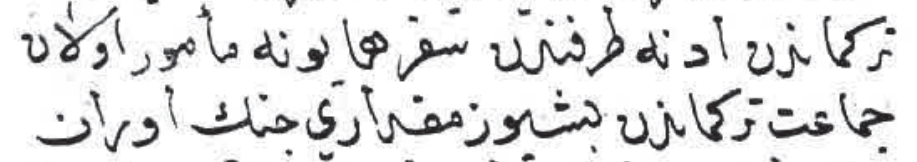 تركماندن أدنه طرفندن سفر همايونه مأمور أولان
جماعت تركماندن بشيوز مقداري جنك أوران